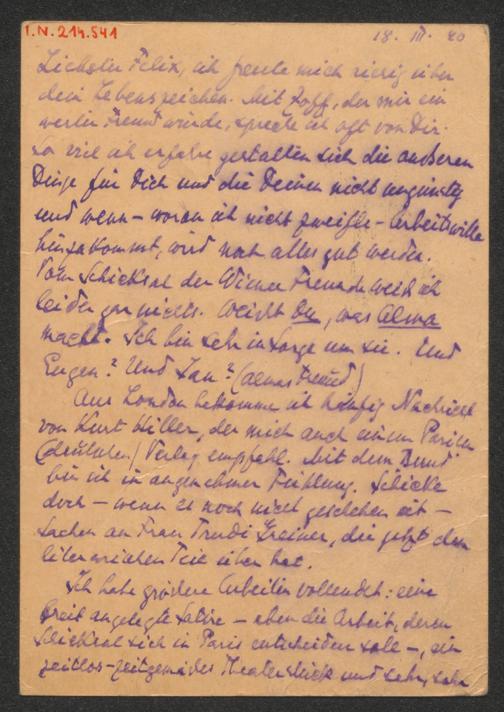 I.N. 214.541
18. III. 40
Liebster Felix, ich freute mich riesig über
dein Lebenszeichen. Mit Zoff, der mir ein
werter Freund wurde, spreche ich oft von Dir.
so viel ich erfahre gestalten sich die äusseren
Dinge für Dich und die Deinen nicht ungünstig
und wenn – woran ich nicht zweifle – Arbeitswille
hinzukommt, wird noch alles gut werden.
Vom Schicksal der Wiener Freunde weiß ich
leider gar nichts. Weißt Du, was Alma
macht. Ich bin sehr in Sorge um sie. Und
Eugen? Und Jan? (Almas Freund)
Aus London bekomme ich häufig Nachricht
von Kurt Hiller, der mich auch einem Pariser
(deutschen) Verlag empfahl. Mit dem Bund
bin ich in angenehmer Fühlung. Schicke
doch – wenn es noch nicht geschehen ist –
Sachen an Frau Trudi Greiner, die jetzt den
literarischen Teil über hat.
Ich habe größere Arbeiten vollendet: eine
breit angelegte Satire – eben die Arbeit, deren
Schicksal sich in Paris entscheiden solle –, ein
zeitlos-zeitgemäßes Theaterstück und sehr, sehr